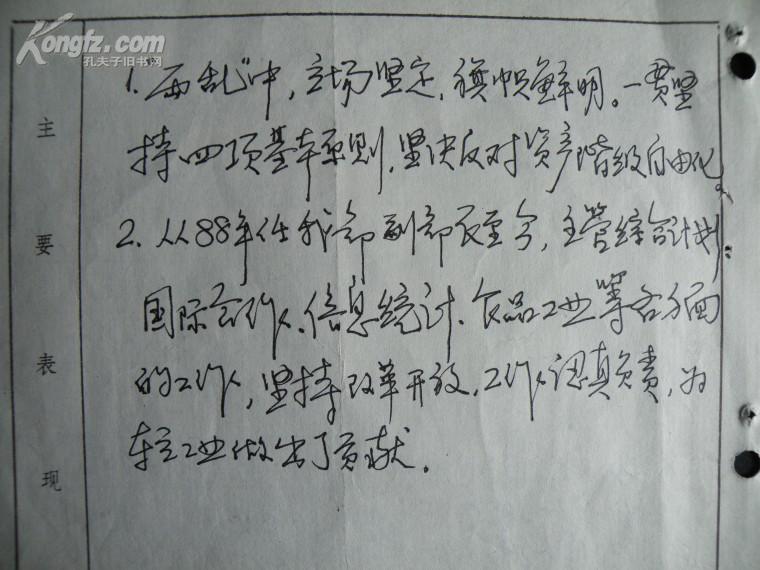 Kongfz.com
孔夫子旧书网
主要表现
1. "两乱"中，立场坚定，旗帜鲜明。一贯坚
持四项基本原则，坚决反对资产阶级自由化。
2. 从88年任我部副部长至今，主管综合计划
国际合作、信息统计、食品工业等各方面
的工作，坚持改革开放，工作认真负责，为
轻工业做出了贡献。